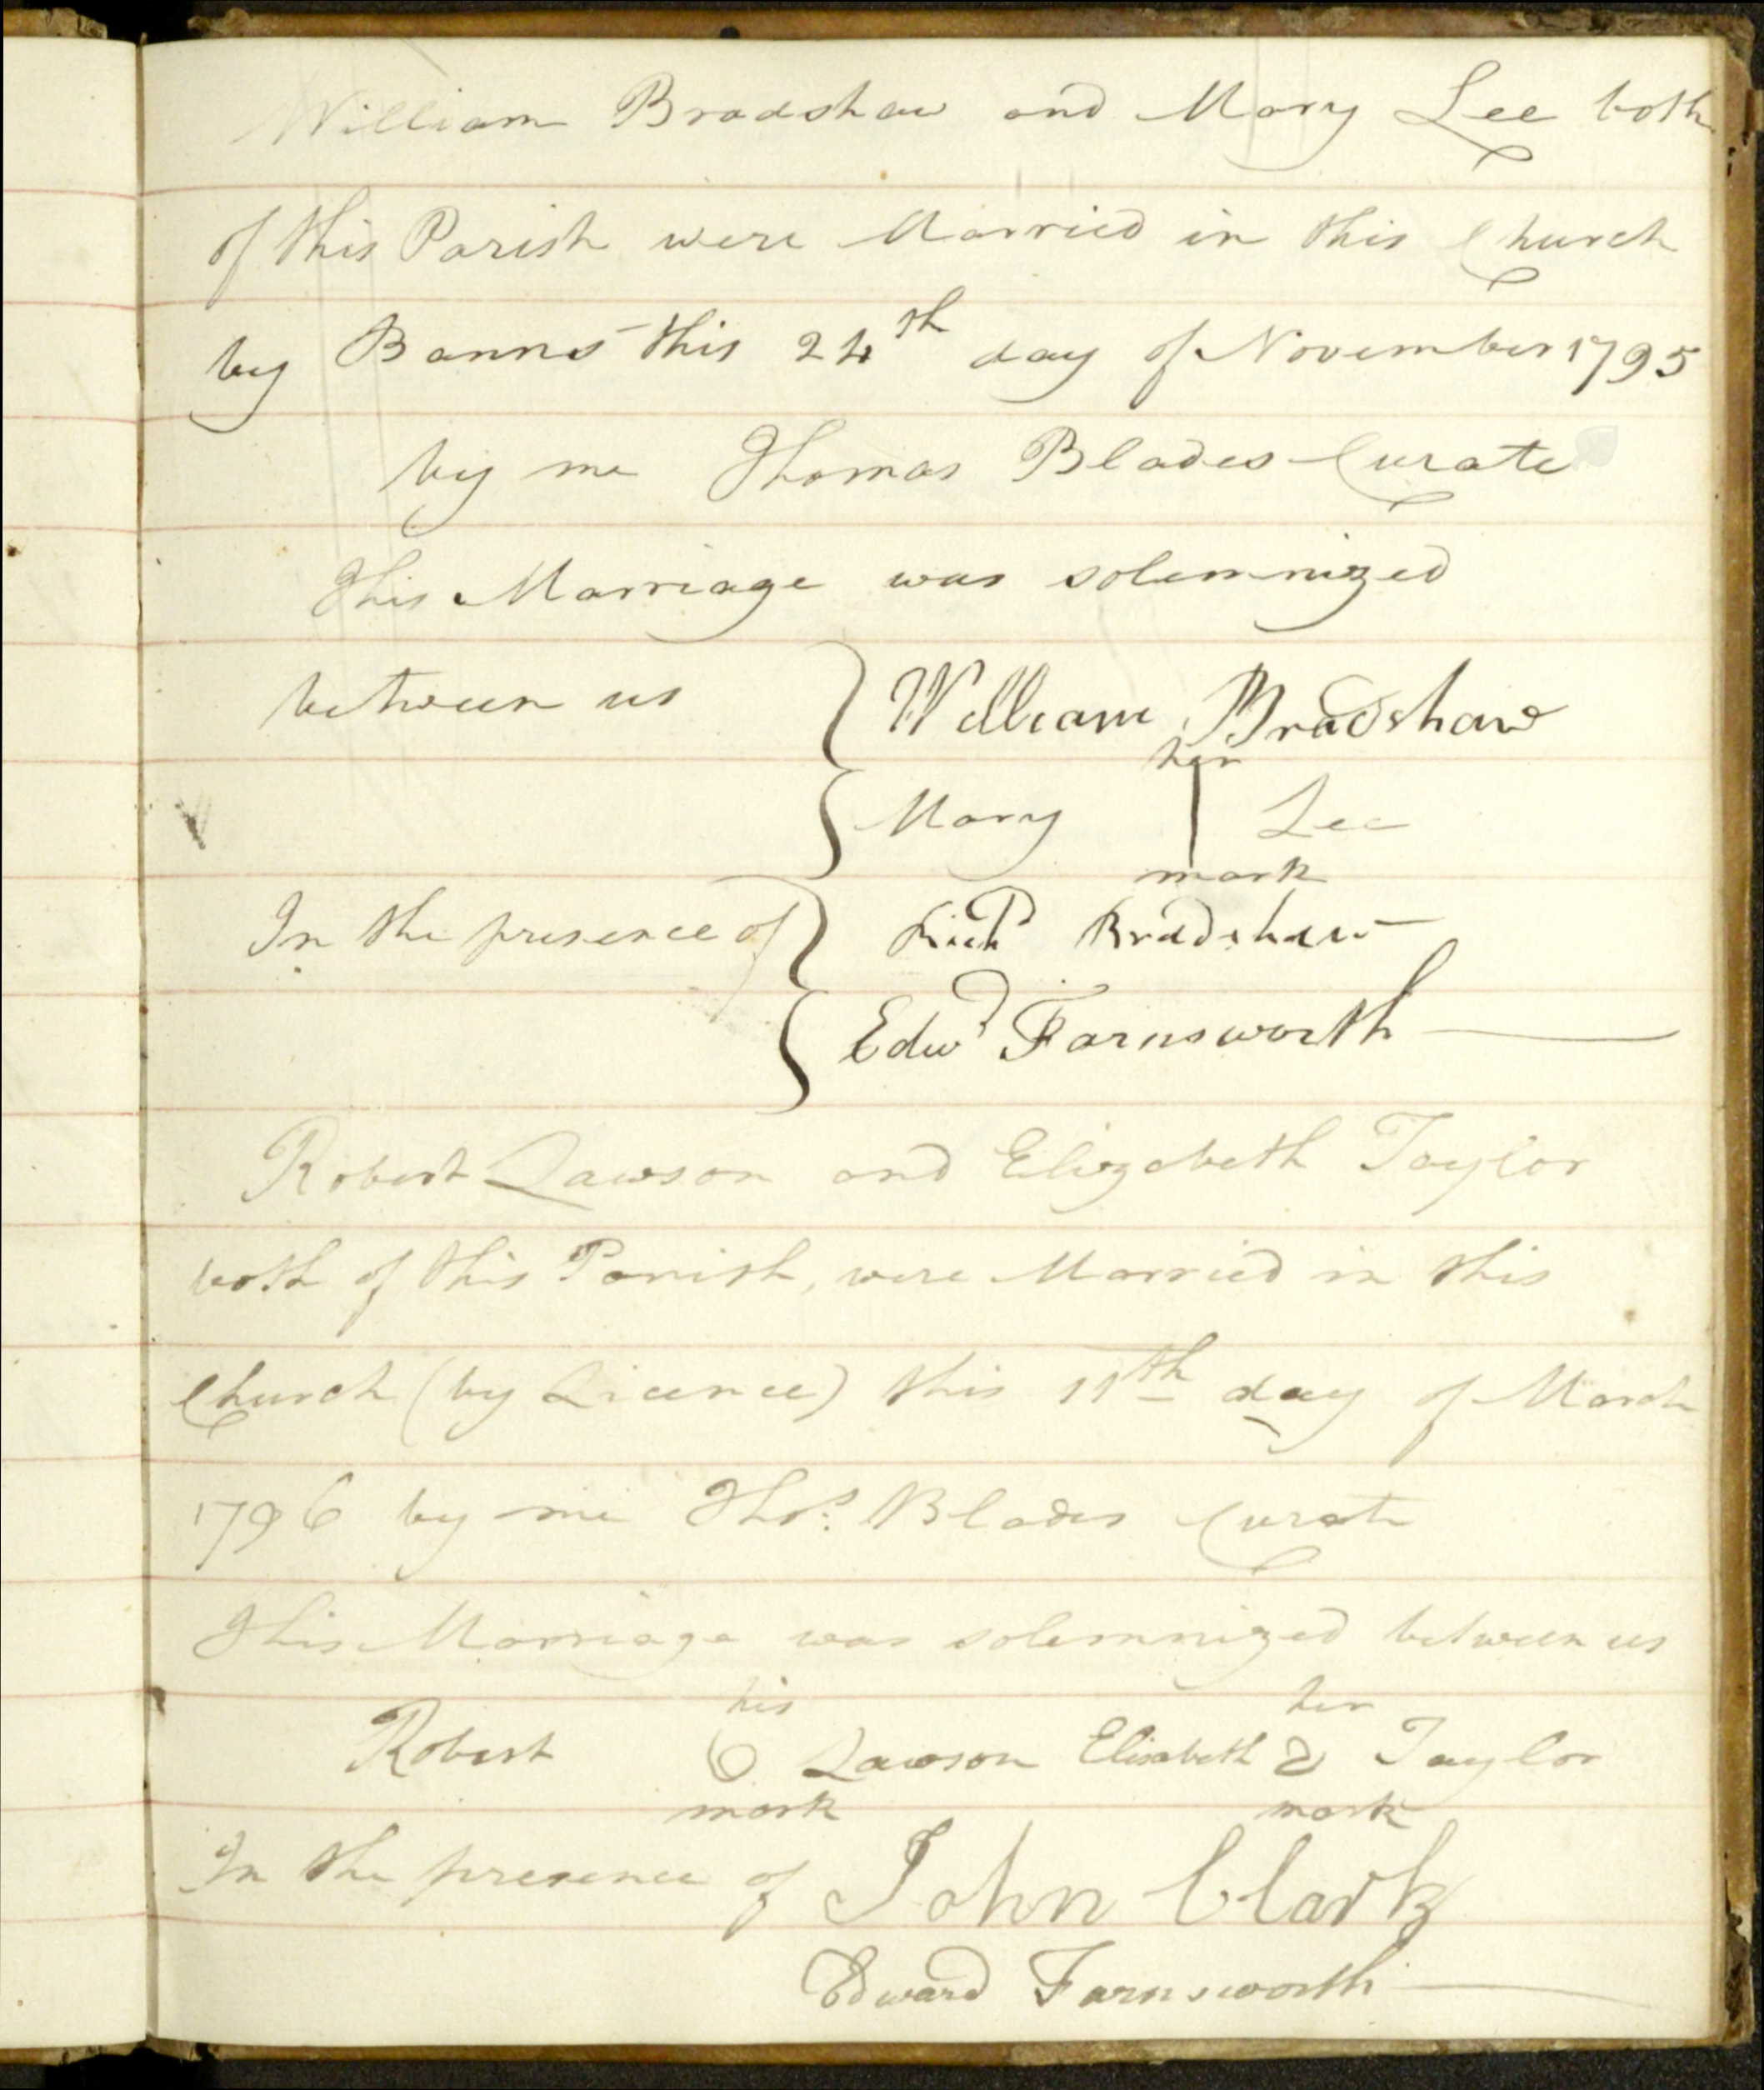 William Bradshaw and Mary Lee both
of this Parish were Married in this Church
by Banns this 24th day of November 1795
by me Thomas Blades Curate
This Marriage was solemnized
between us William Bradshaw
her
Mary Lee
mark
In the presence of Richd Bradshaw
Edwd Farnsworth
Robert Lawson and Elizabeth Taylor
both of this Parish, were Married in this
Church (by Licence) this 11th day of March
1796 by me Thos. Blades Curate
This Marriage was solemnized between us
his her
Robert Lawson Elisabeth Taylor
mark mark
In the presence of John Clark
Edward Farnsworth